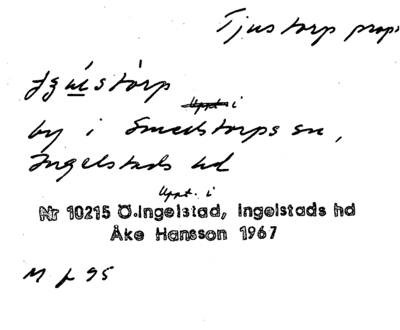 Tjustorp prop
by i Smedstorps sn,
Ingelstads hd
Uppt. i
Nr 10215 Ö.Ingelstad, Ingelstads hd
Åke Hansson 1967
M f 95